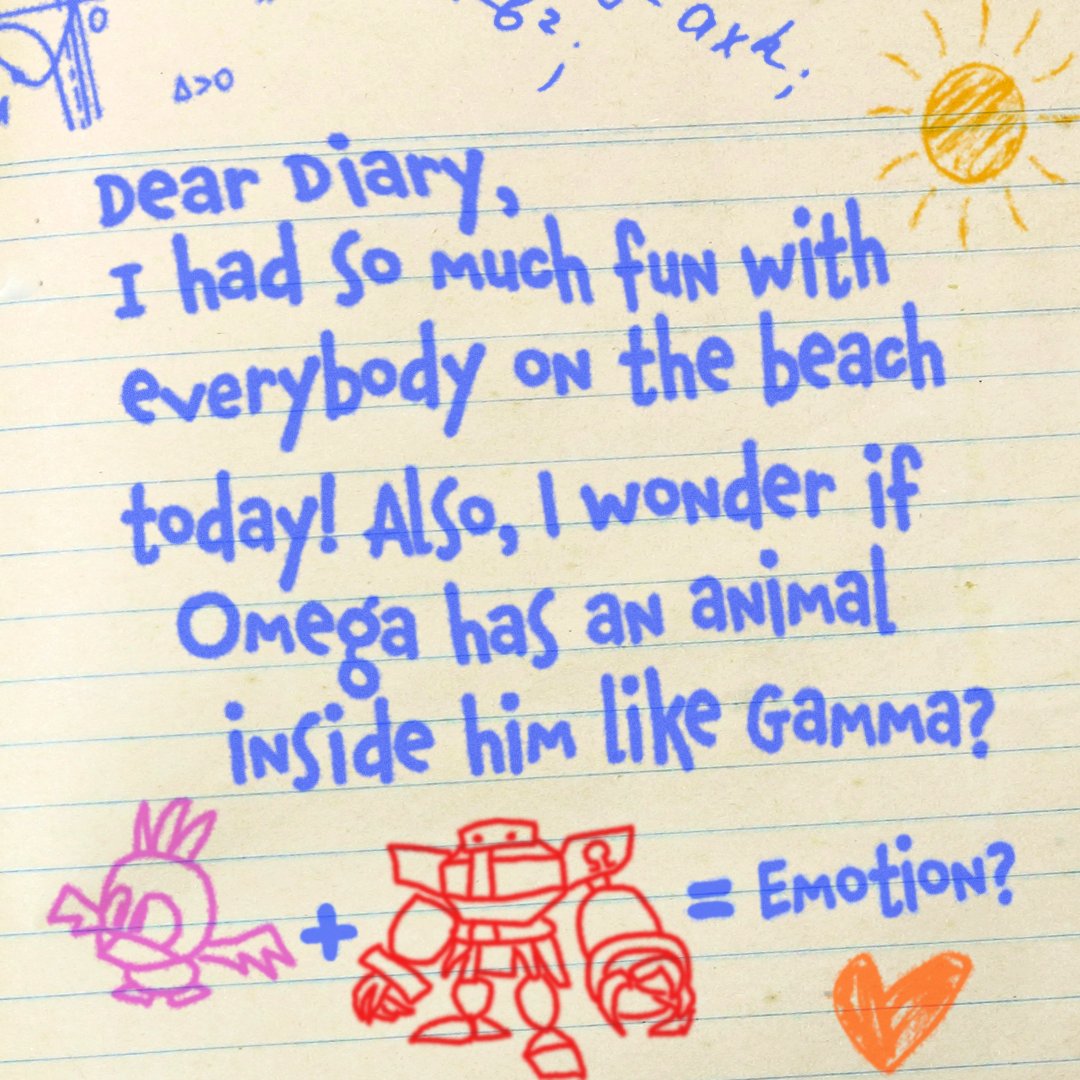 Δ>0
axk;
Dear Diary,
I had so much fun with
everybody on the beach
today! Also, I wonder if
Omega has an animal
inside him like Gamma?
Ω
+ = Emotion?